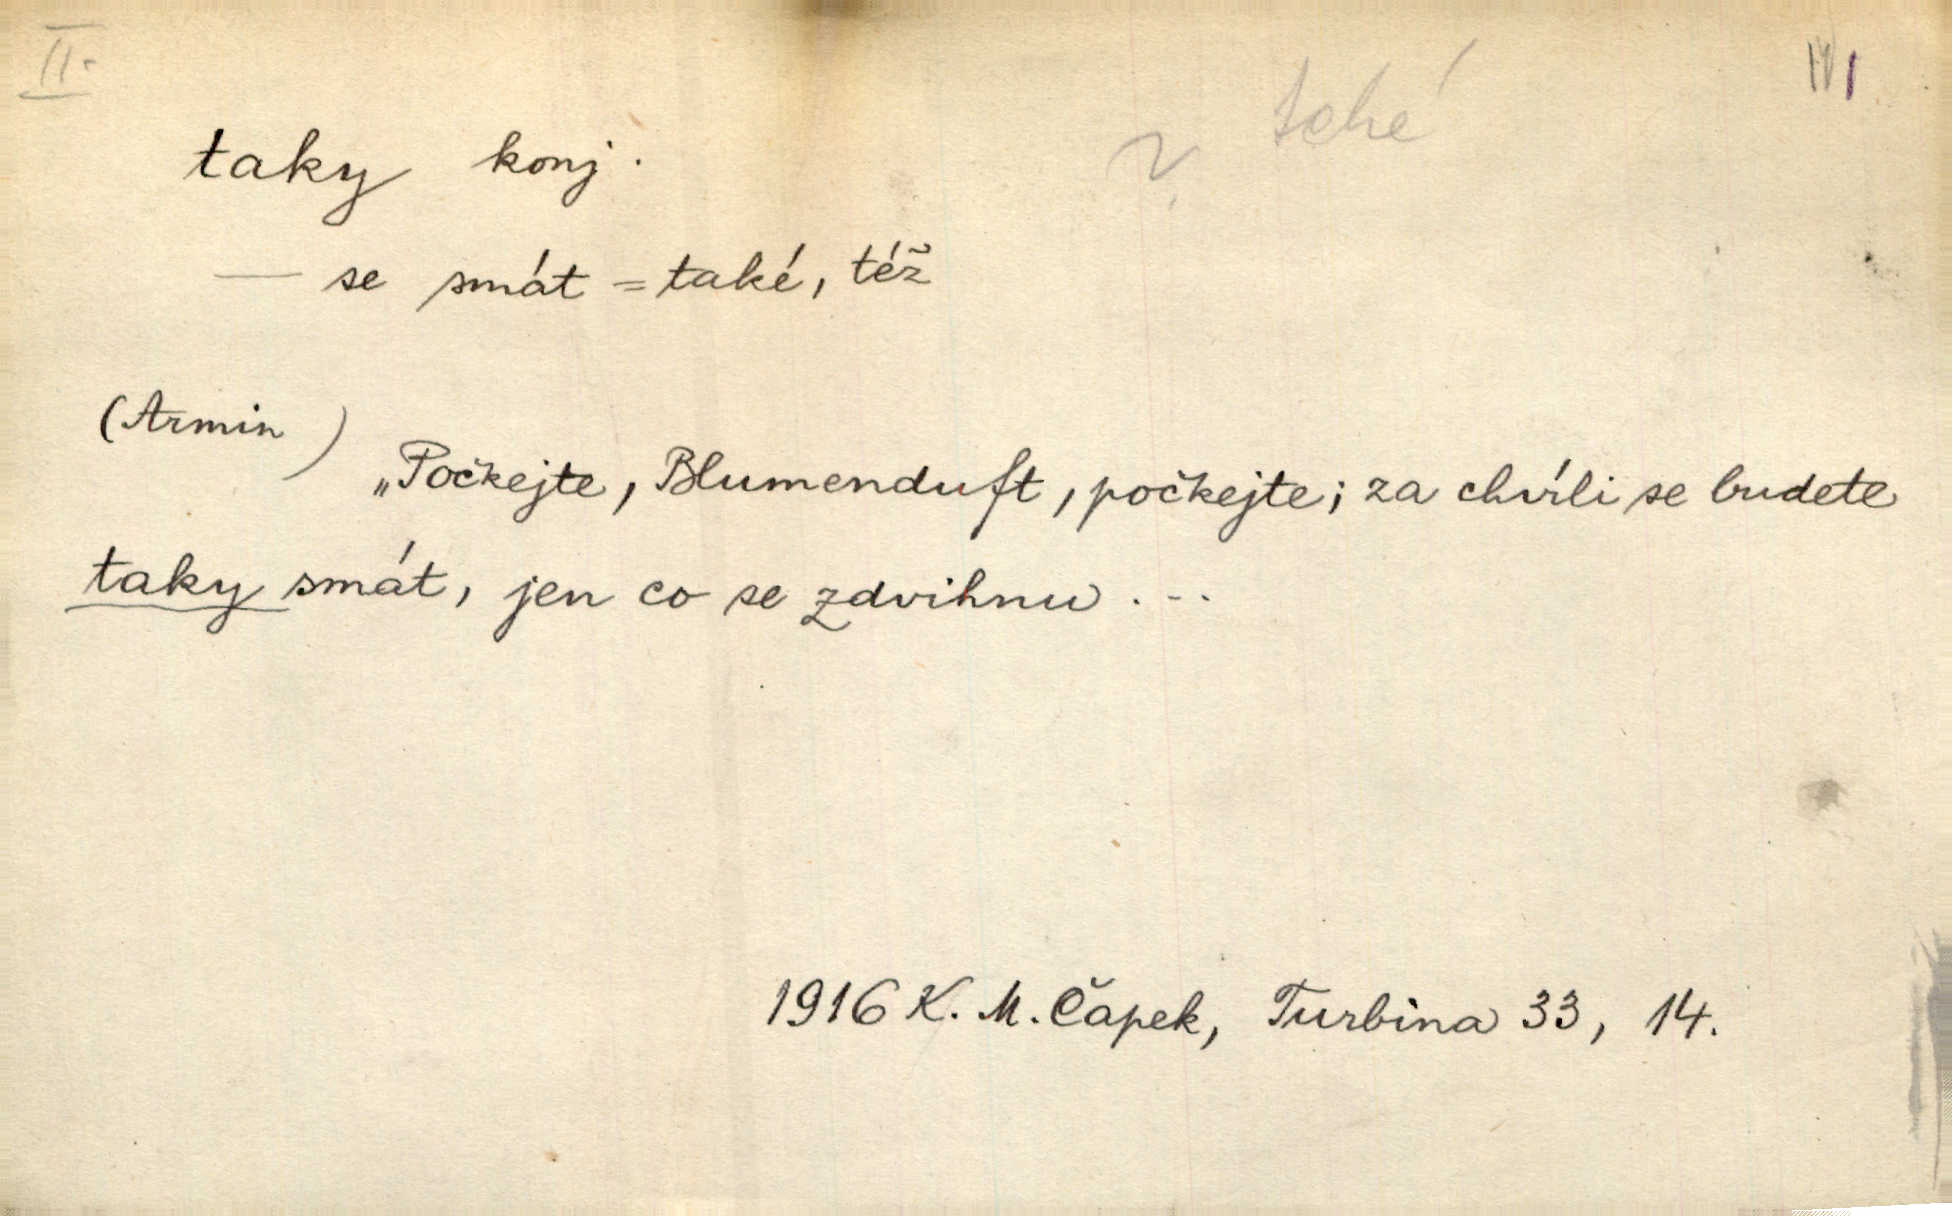 II.
taky konj.
— se smát = také, též
(Armin)
„Počkejte, Blumenduft, počkejte; za chvíli se budete
taky smát, jen co se zdvihnu ...
1916 K. M. Čapek, Turbina 33, 14.